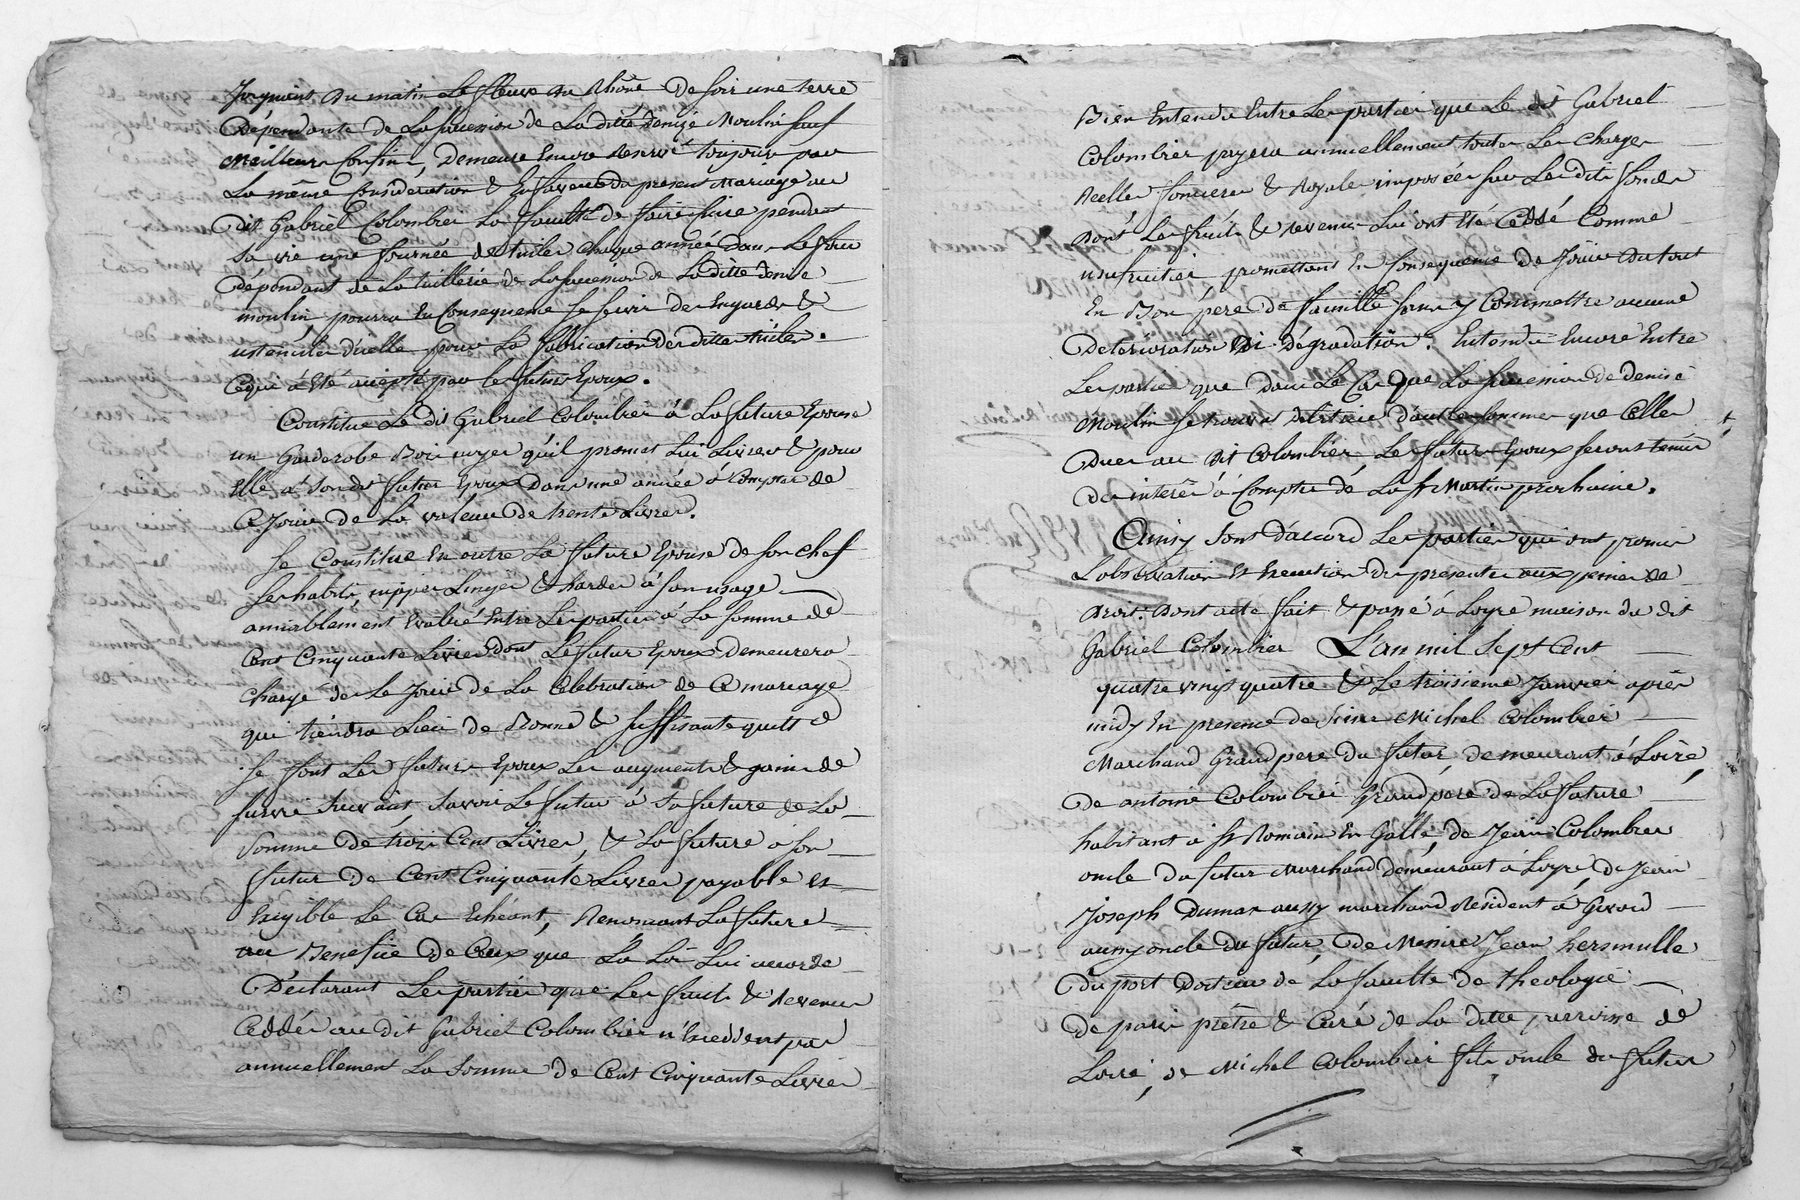 Joignant du matin Le fleuve du Rhône De soir une terre
Dépendante de La succession de La ditte denise Moulin sauf
Meilleurs Confins, Demeure Encore reservé toujours par
La même Consideration & En faveur du present Mariage au
Dit Gabriel Colombier La faculté de faire Cuire pendant
Sa vie une fournée de tuiles Chaque année dans Le four
Dépendant de La tuillerie de La succession de La ditte denise
moulin, pourra En Consequence se servir des hangards &
ustenciles d'icelle pour La fabrication des dittes tuiles.
Ce qui a Eté accepté par les futurs Epoux.
Constitue Le dit Gabriel Colombier à La future Epouse
un Garderobe Bois noyer qu'il promet Lui Livrer & pour
Elle à son dit futur Epoux Dans une année à Compter de
Ce Jour de La valeur de trente Livres.
Se Constitue En outre La future Epouse de son chef
ses habits, nippes Linges & hardes à son usage
amiablement Evalué Entre Les parties à La somme de
Cent Cinquante Livres dont Le futur Epoux Demeurera
chargé dès Le Jour de La Celebration de Ce mariage
qui tiendra Lieu de Bonne & suffisante quitte
Se font Les futurs Epoux Les augments & gains de
survie suivants, Savoir Le futur à Sa future de La
Somme de trois Cens Livres, & La future à son
futur de Cent Cinquante Livres payable &
Exigible Le Cas Echeant, Renoncant La future
au Benefice de Ceux que La Loi Lui accorde
Déclarant Les parties que Les fruits & Revenus
Cédés au dit Gabriel Colombier n'Excedent pas
annuellement La Somme de Cent Cinquante Livres
Bien Entendu Entre Les parties que Le dit Gabriel
Colombier payera annuellement toutes Les Charges
Reelles foncieres & Royales imposées sur Les dits fonds
Dont Les fruits & Revenus Lui ont Eté Cédé Comme
usufruitier promettant En Consequence de Jouir du tout
En Bon père de famille sans y Commettre aucune
Deterioration Ni Dégradation. Entendu Encore Entre
Les parties que dans Le Cas que La succession de denise
Moulin se trouva debitrice d'autres sommes que Celles
Dues au dit Colombier, Les futurs Epoux seront tenus
Des interêts à Compter de La St Martin prochaine.
Ainsy Sont d'accord Les parties qui ont promis
L'observation Et Execution des presentes aux peines de
Droit. Dont acte fait & passé à Loyre maison du dit
Gabriel Colombier L'an mil Sept Cent
quatre vingt quatre & Le troisieme Janvier après
midy En presence de sieur Michel Colombier
Marchand Grand pere du futur, demeurant à Loire,
De antoine Colombier Grand pere de La future
habitant à St Romain En Galle, de Jean Colombier
oncle du futur Marchand demeurant à Loyre, De Jean
Joseph Dumas aussy marchand Resident à Givord
aussy oncle du futur, de Messire Jean
Duport Docteur de La faculté de theologie
De paris prêtre & Curé de La ditte parroisse de
Loire, de Michel Colombier fils oncle du futur